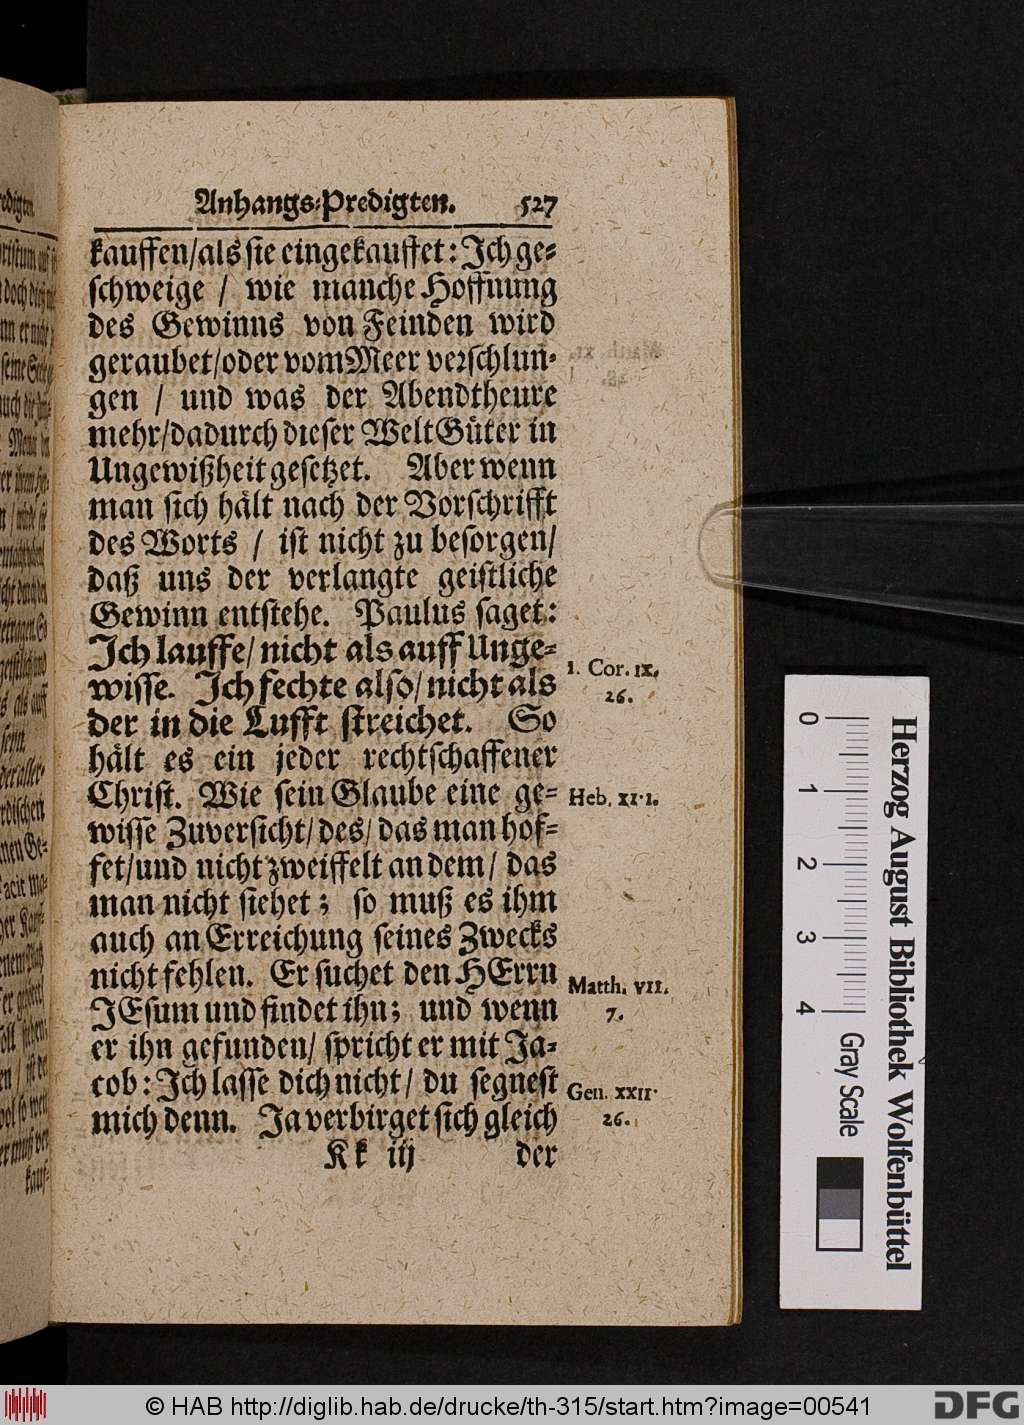 Anhangs-Predigten. 527
kauffen/als sie eingekauffet: Ich ge-
schweige / wie manche Hoffnung
des Gewinns von Feinden wird
geraubet/oder vom Meer verschlun-
gen / und was der Abendtheure
mehr/dadurch dieser Welt Güter in
Ungewißheit gesetzet. Aber wenn
man sich hält nach der Vorschrifft
des Worts / ist nicht zu besorgen/
daß uns der verlangte geistliche
Gewinn entstehe. Paulus saget:
Ich lauffe/ nicht als auff Unge-
wisse. Ich fechte also/ nicht als
der in die Lufft streichet. So
hält es ein jeder rechtschaffener
Christ. Wie sein Glaube eine ge-
wisse Zuversicht/ des/ das man hof-
fet/und nicht zweiffelt an dem/ das
man nicht siehet; so muß es ihm
auch an Erreichung seines Zwecks
nicht fehlen. Er suchet den HErrn
JEsum und findet ihn; und wenn
er ihn gefunden/ spricht er mit Ja-
cob: Ich lasse dich nicht/ du segnest
mich denn. Ja verbirget sich gleich
Kk iij der
1. Cor. IX.
26.
Heb. XI. 1.
Matth. VII.
7.
Gen. XXII.
26.
0 1 2 3 4
Herzog August Bibliothek Wolfenbüttel
Gray Scale
© HAB http://diglib.hab.de/drucke/th-315/start.htm?image=00541
DFG